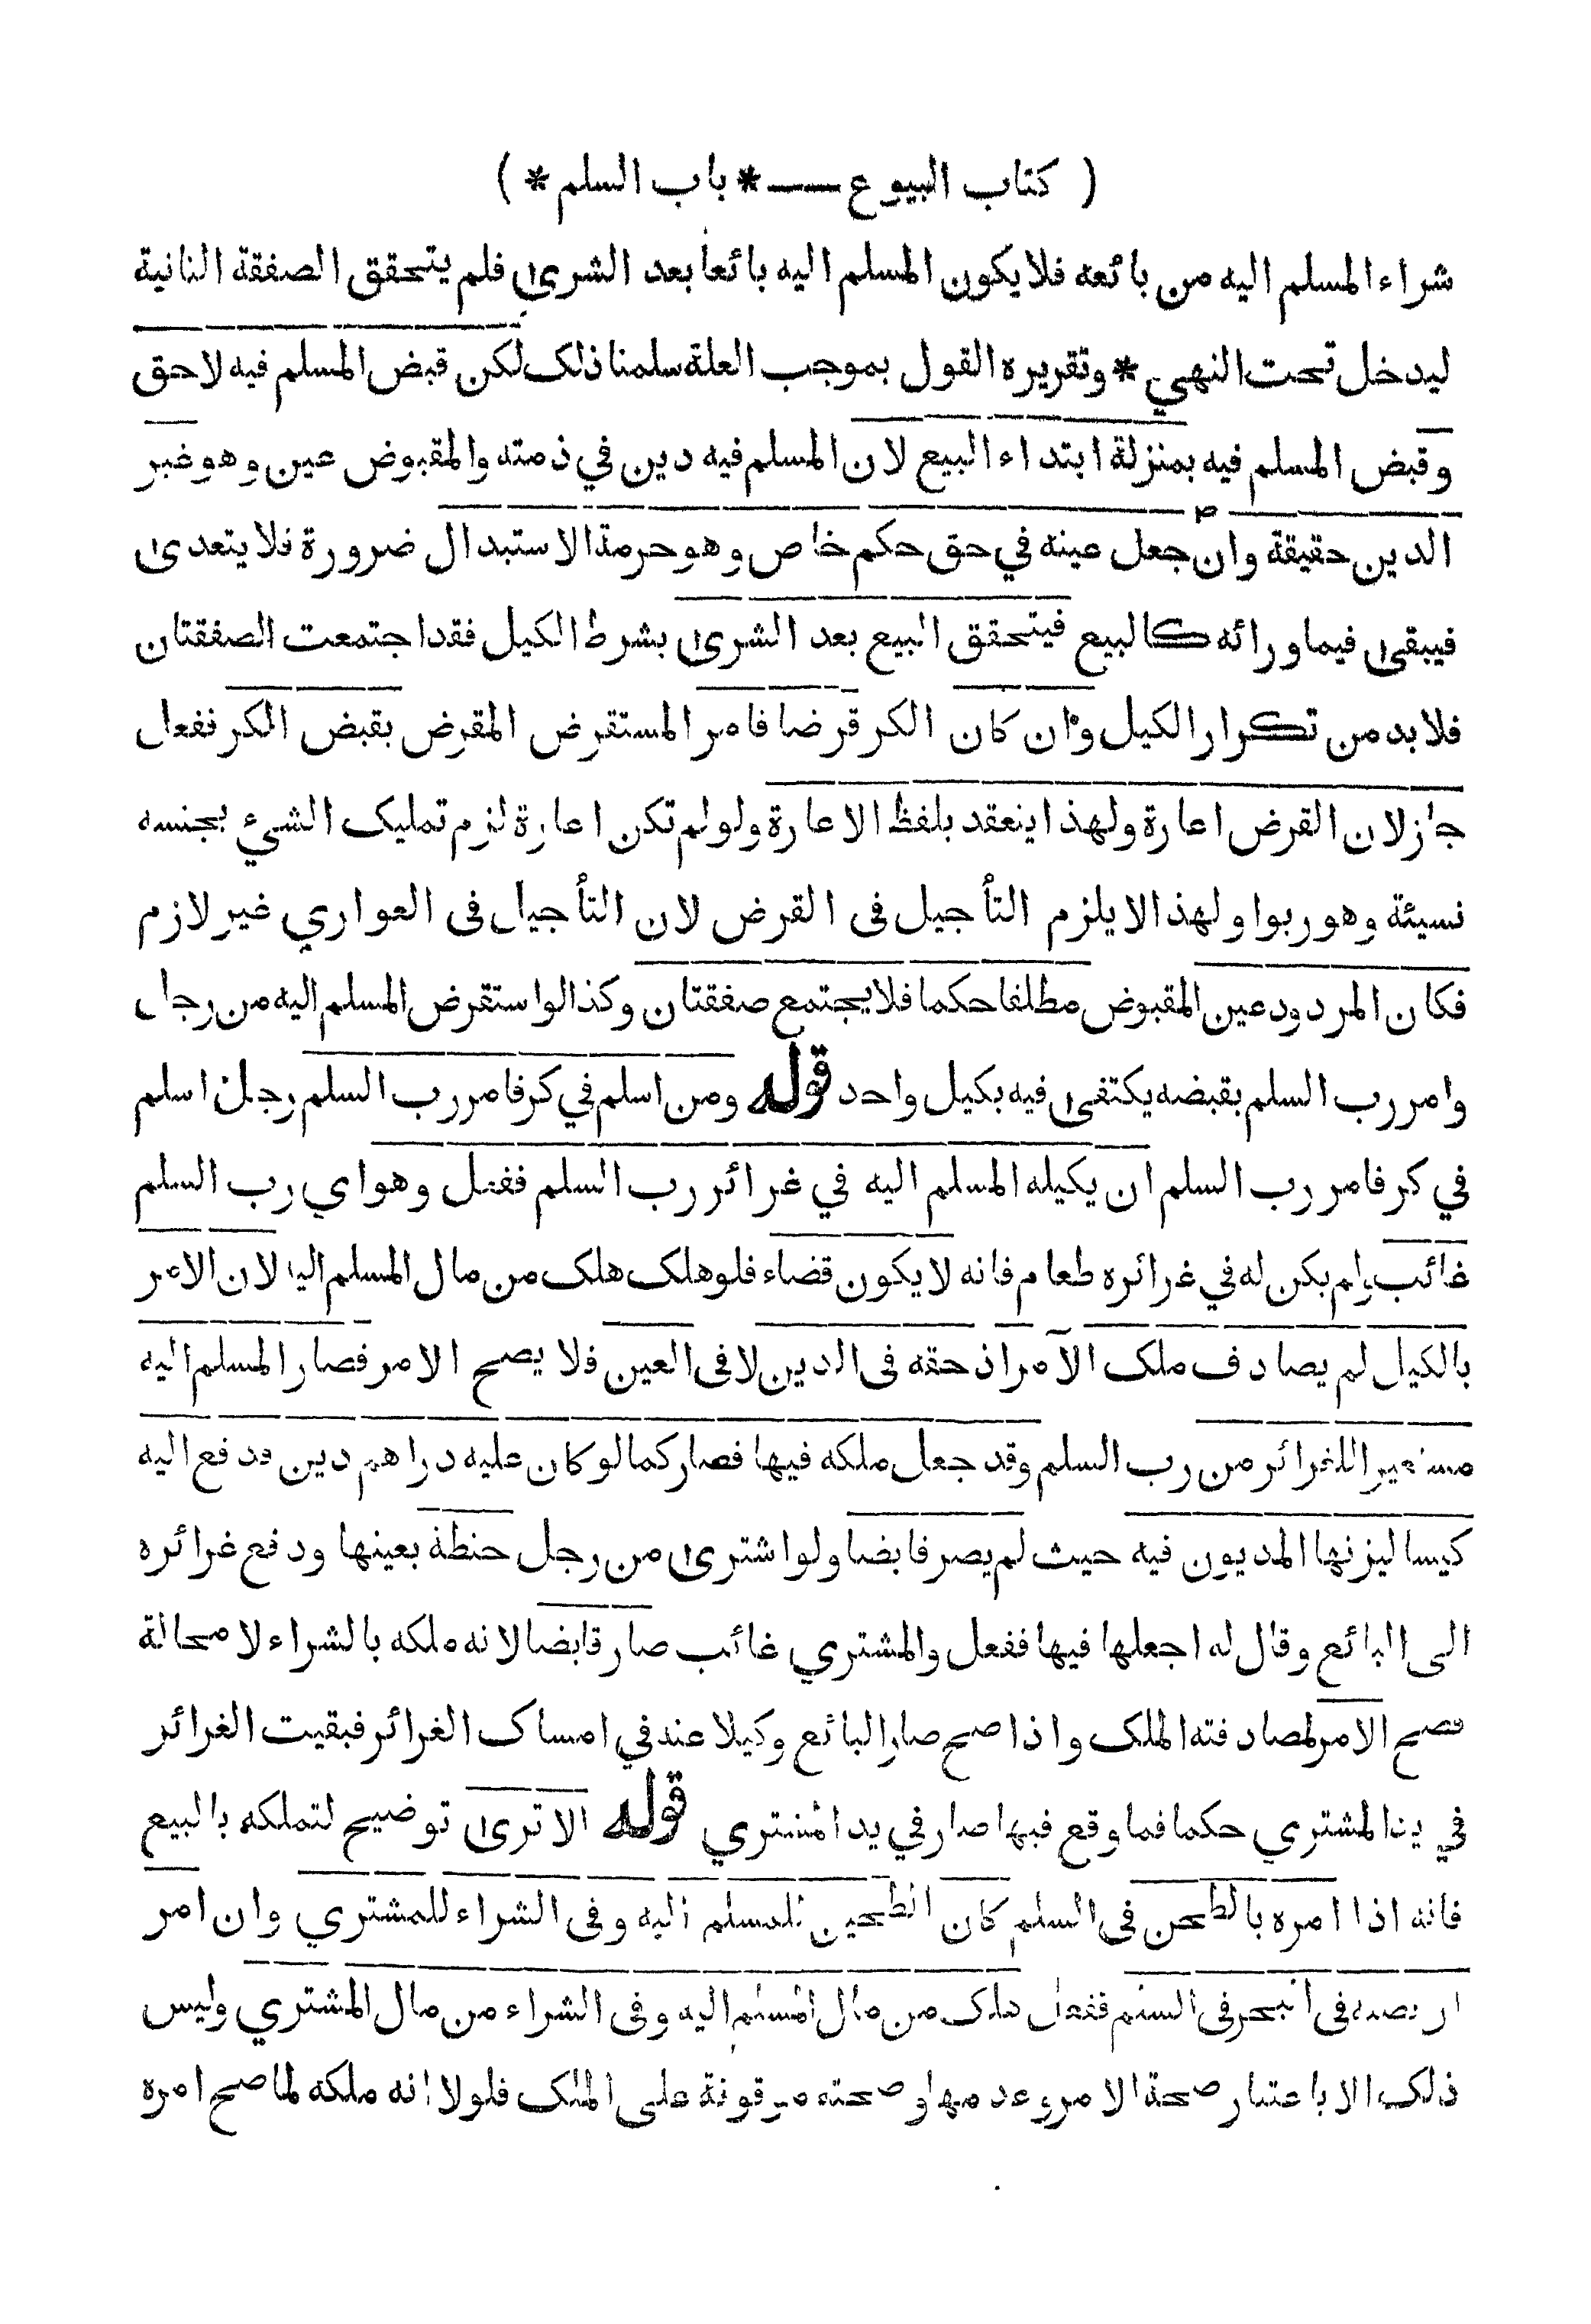 ( كتاب البيوع ـــ * باب السلم * )
شراء المسلم اليه من بائعه فلا يكون المسلم اليه بائعا بعد الشرى فلم يتحقق الصفقة الثانية
ليدخل تحت النهي * وتقريره القول بموجب العلة سلمنا ذلك لكن قبض المسلم فيه لاحق
وقبض المسلم فيه بمنزلة ابتداء البيع لان المسلم فيه دين في ذمته والمقبوض عين وهو غير
الدين حقيقة وان جعل عينه في حق حكم خاص وهو حرمة الاستبدال ضرورة فلا يتعدى
فيبقى فيما ورائه كالبيع فيتحقق البيع بعد الشرى بشرط الكيل فقد اجتمعت الصفقتان
فلا بد من تكرار الكيل وان كان الكر قرضا فامر المستقرض المقرض بقبض الكر ففعل
جاز لان القرض اعارة ولهذا ينعقد بلفظ الاعارة ولو لم تكن اعارة لزم تمليك الشيء بجنسه
نسيئة وهو ربوا ولهذا لا يلزم التأجيل فى القرض لان التأجيل فى العواري غير لازم
فكان المردود عين المقبوض مطلقا حكما فلا يجتمع صفقتان وكذا لو استقرض المسلم اليه من رجل
وامر رب السلم بقبضه يكتفى فيه بكيل واحد قوله ومن اسلم في كر فامر رب السلم رجل اسلم
في كر فامر رب السلم ان يكيله المسلم اليه في غرائر رب السلم ففعل وهو اي رب السلم
غائب ولم يكن له في غرائره طعام فانه لا يكون قضاء فلو هلك هلك من مال المسلم اليه لان الامر
بالكيل لم يصادف ملك الآمر اذ حقه فى الدين لا فى العين فلا يصح الامر فصار المسلم اليه
مستعيرا للغرائر من رب السلم وقد جعل ملكه فيها فصار كما لو كان عليه دراهم دين فدفع اليه
كيسا ليزنها المديون فيه حيث لم يصر قابضا ولو اشترى من رجل حنطة بعينها ودفع غرائره
الى البائع وقال له اجعلها فيها ففعل والمشتري غائب صار قابضا لانه ملكه بالشراء لا محالة
فصح الامر لمصادفته الملك واذا صح صار البائع وكيلا عنه في امساك الغرائر فبقيت الغرائر
في يد المشتري حكما فما وقع فيها صار في يد المشتري قوله الا ترى توضيح لتملكه بالبيع
فانه اذا امره بالطحن فى السلم كان الطحين للمسلم اليه وفى الشراء للمشتري وان امر
ان يصبه فى البحر فى السلم ففعل هلك من مال المسلم اليه وفى الشراء من مال المشتري وليس
ذلك الا باعتبار صحة الامر وعدمها وصحته موقوفة على الملك فلولا انه ملكه لما صح امره